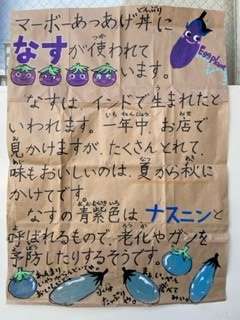 マーボーあつあげ丼に
どんぶり
なすが使われて
つか
Eggplant
います。
なすは、インドで生まれたと
いわれます。一年中、お店で
見かけますが、たくさんとれて、
味もおいしいのは、夏から秋に
かけてです。
なすの青紫色はナスニンと
呼ばれるもので、老化やガンを
予防したりするそうです。